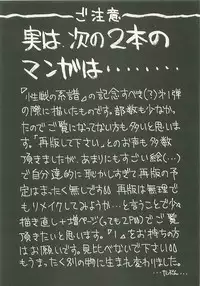 ご注意
実は、次の2本の
マンガは‥‥‥‥
『性戦の系譜』の記念すべき(?)第1弾
の際に描いたものです。部数も少なか。
たのでご覧になってない方も多いと思いま
す。「再版して下さい」とのお声も多数
頂きましたが、あまりにもすごい絵(…)
で自分達的に恥かしすぎて再版の予
定はまったく無しです。再版は無理で
もリメイクしてみようか…と言うことで少々
描き直し+増ページ
でご覧
頂きたいと思います。『1』をお持ちの方
はお願いです。見比べないで下さい
もうま、たく別の物に生まれ変わりました。